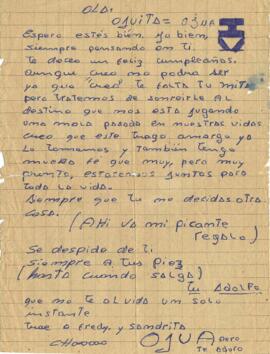 OLA:
OJUITA = OJUA
Espero estés bien. Yo bien,
siempre pensando en ti.
Te deceo un feliz cumpleaños.
Aunque creo no podra ser
ya que "creo" te falta tu mita
pero tratemos de sonreirle al
destino que nos esta jugando
una mala pasada en nuestras vidas
creo que este trago amargo ya
lo tomamos y también tengo
mucha fé que muy, pero muy
pronto, estaremos juntos para
toda la vida.
Siempre que tu no decidas otra
cosa.
(Ahi va mi picante
regalo)
Se despide de ti
siempre a tus piez
(hasta cuando salga)
tu Adolfo
que no te olvida un solo
instante
trae a Fredy. y Sandrita
Chaooooo
OJUA pero
te adoro